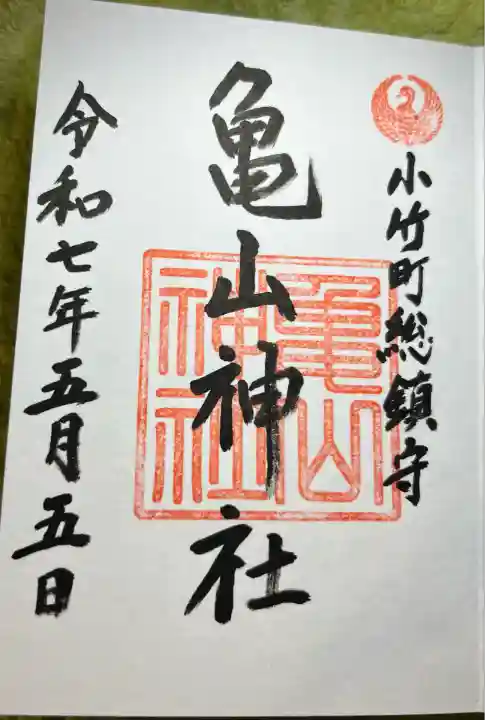 小竹町総鎮守
亀山神社
亀山神社
令和七年五月五日